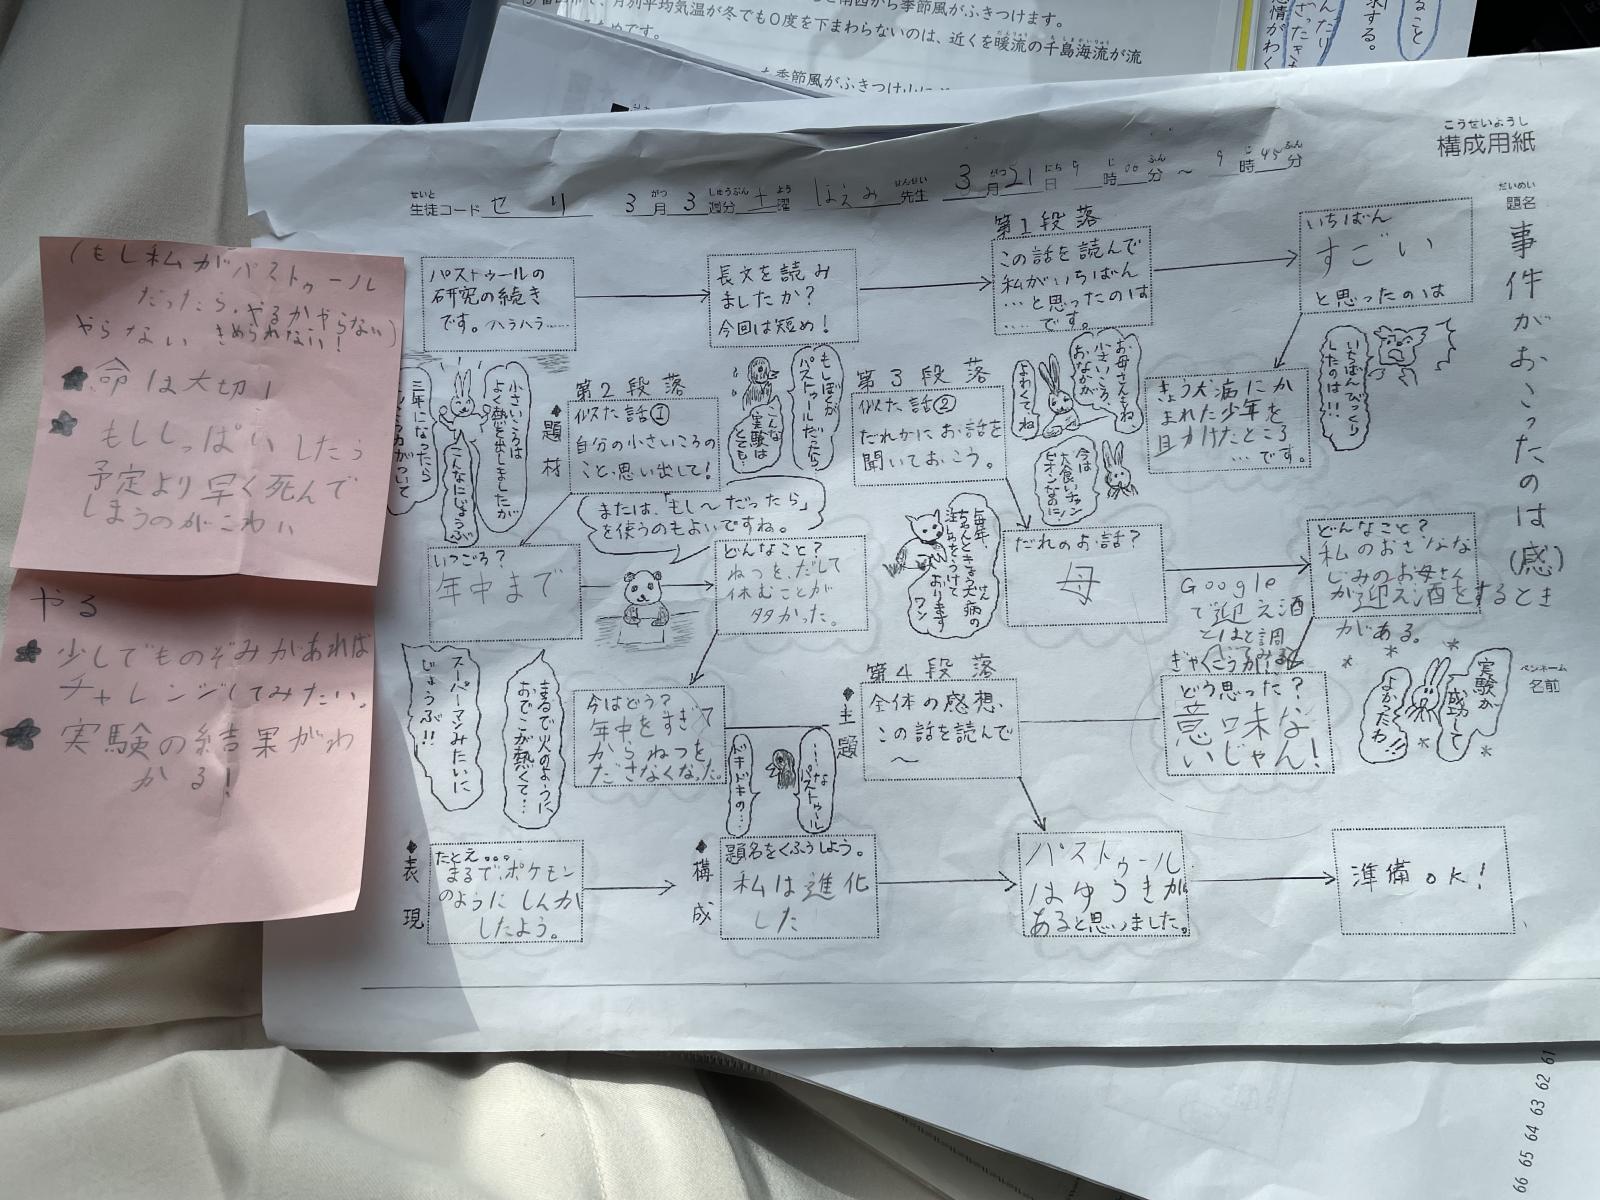 月別平均気温が冬でも0度を下まわらないのは、近くを暖流の千島海流が流
季節風がふきつけ
構成用紙
こうせいようし
生徒コード セリ 3月3週分土曜 はえみ先生 3月21日9時00分～9時45分
題名
だいめい
事件がおこったのは(感)
ペンネーム
名前
パストゥールの
研究の続き
です。ハラハラ……
長文を読み
ましたか?
今回は短め!
第1段落
この話を読んで
私がいちばん
…と思ったのは
……です。
いちばん
すごい
と思ったのは
いちばんびっくり
したのは!!
きょう犬病にか
まれた少年を
目かけたところ
…です。
お母さんもね、
小さいころ、
おなかが
よわくてね
今は
大食いチャン
ピオンなのに!
第2段落
題材
似た話①
自分の小さいころの
こと、思い出して!
小さいころは
よく熱を出しましたが
こんなにじょうぶ
三年になったら
もしぼくが
パストゥールだったら
こんな
実験は
とても…
または、「もし～だったら」
を使うのもよいですね。
いつごろ?
年中まで
どんなこと?
ねつを、だして
休むことが
多かった。
今はどう?
年中をすぎて
からねつを
ださなくなった。
まるで火のように
おでこが熱くて…
スーパーマンみたいに
じょうぶ!!
第3段落
似た話②
だれかにお話を
聞いておこう。
だれのお話?
母
毎年、
ちゃんときょう犬病の
注しゃをうけて
おります
ワン
どんなこと?
私のおさなな
じみのお母さん
が迎え酒をするとき
がある。
Google
で迎え酒
とはと調
べてみる
ぎゃくこうか!
どう思った?
意味な
いじゃん!
実験が
成功して
よかったわ!!
第4段落
主題
全体の感想、
この話を読んで
～
…な
パストゥール
ドキドキの…
パストゥール
はゆうきが
あると思いました。
表現
たとえ。。。
まるで、ポケモン
のようにしんか
したよう。
構成
題名をくふうしよう。
私は進化
した
準備OK!
(もし私がパストゥール
だったら、やるかやらない)
やらない きめられない!
★命は大切!
★もししっぱいしたら
予定より早く死んで
しまうのがこわい
やる
★少しでものぞみがあれば
チャレンジしてみたい。
★実験の結果がわ
かる!
66 65 64 63 62 61